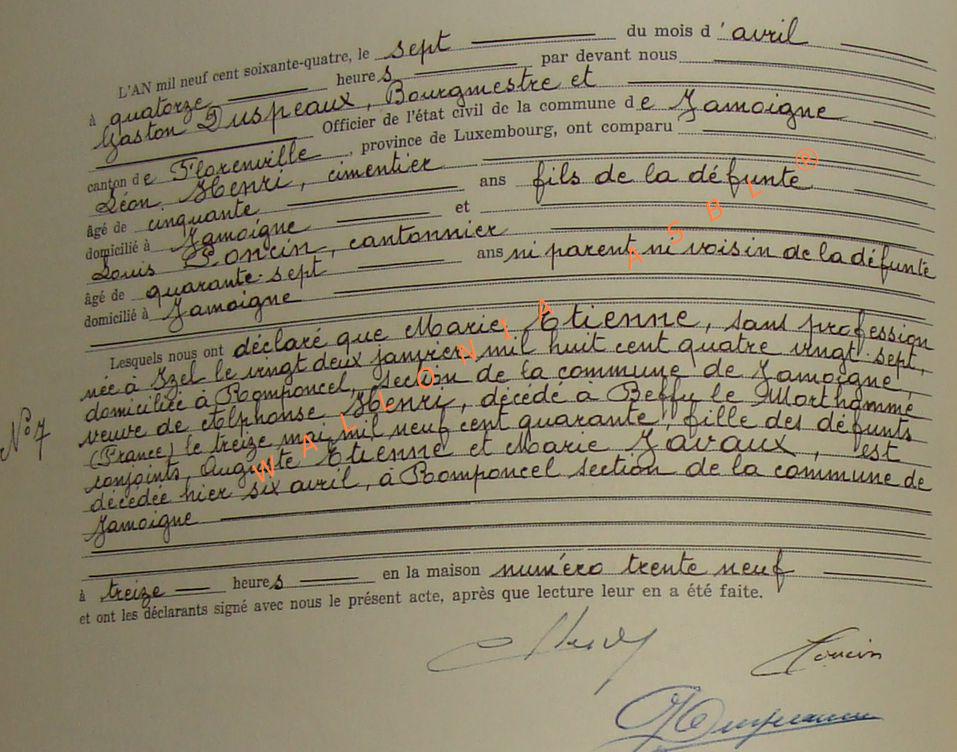 L'AN mil neuf cent soixante-quatre, le sept du mois d'avril
à quatorze heures par devant nous
Gaston Duspeaux, Bourgmestre et
Officier de l'état civil de la commune de Jamoigne
canton de Florenville, province de Luxembourg, ont comparu
Léon Henri, cimentier
âgé de cinquante ans fils de la défunte
domicilié à Jamoigne et
Louis Poncin, cantonnier
âgé de quarante-sept ans ni parent ni voisin de la défunte
domicilié à Jamoigne
Lesquels nous ont déclaré que Marie Etienne, sans profession
née à Izel le vingt deux janvier mil huit cent quatre vingt-sept,
domiciliée à Romponcel, section de la commune de Jamoigne,
veuve de Alphonse Henri, décédé à Beffu le Morthomme
N° 7
(France) le treize mai mil neuf cent quarante, fille des défunts
conjoints, Auguste Etienne et Marie Javaux, est
décédée hier six avril, à Romponcel section de la commune de
Jamoigne
à treize heures en la maison numéro trente neuf
et ont les déclarants signé avec nous le présent acte, après que lecture leur en a été faite.
Henry
Poncin
WALLONIA ASBL ®